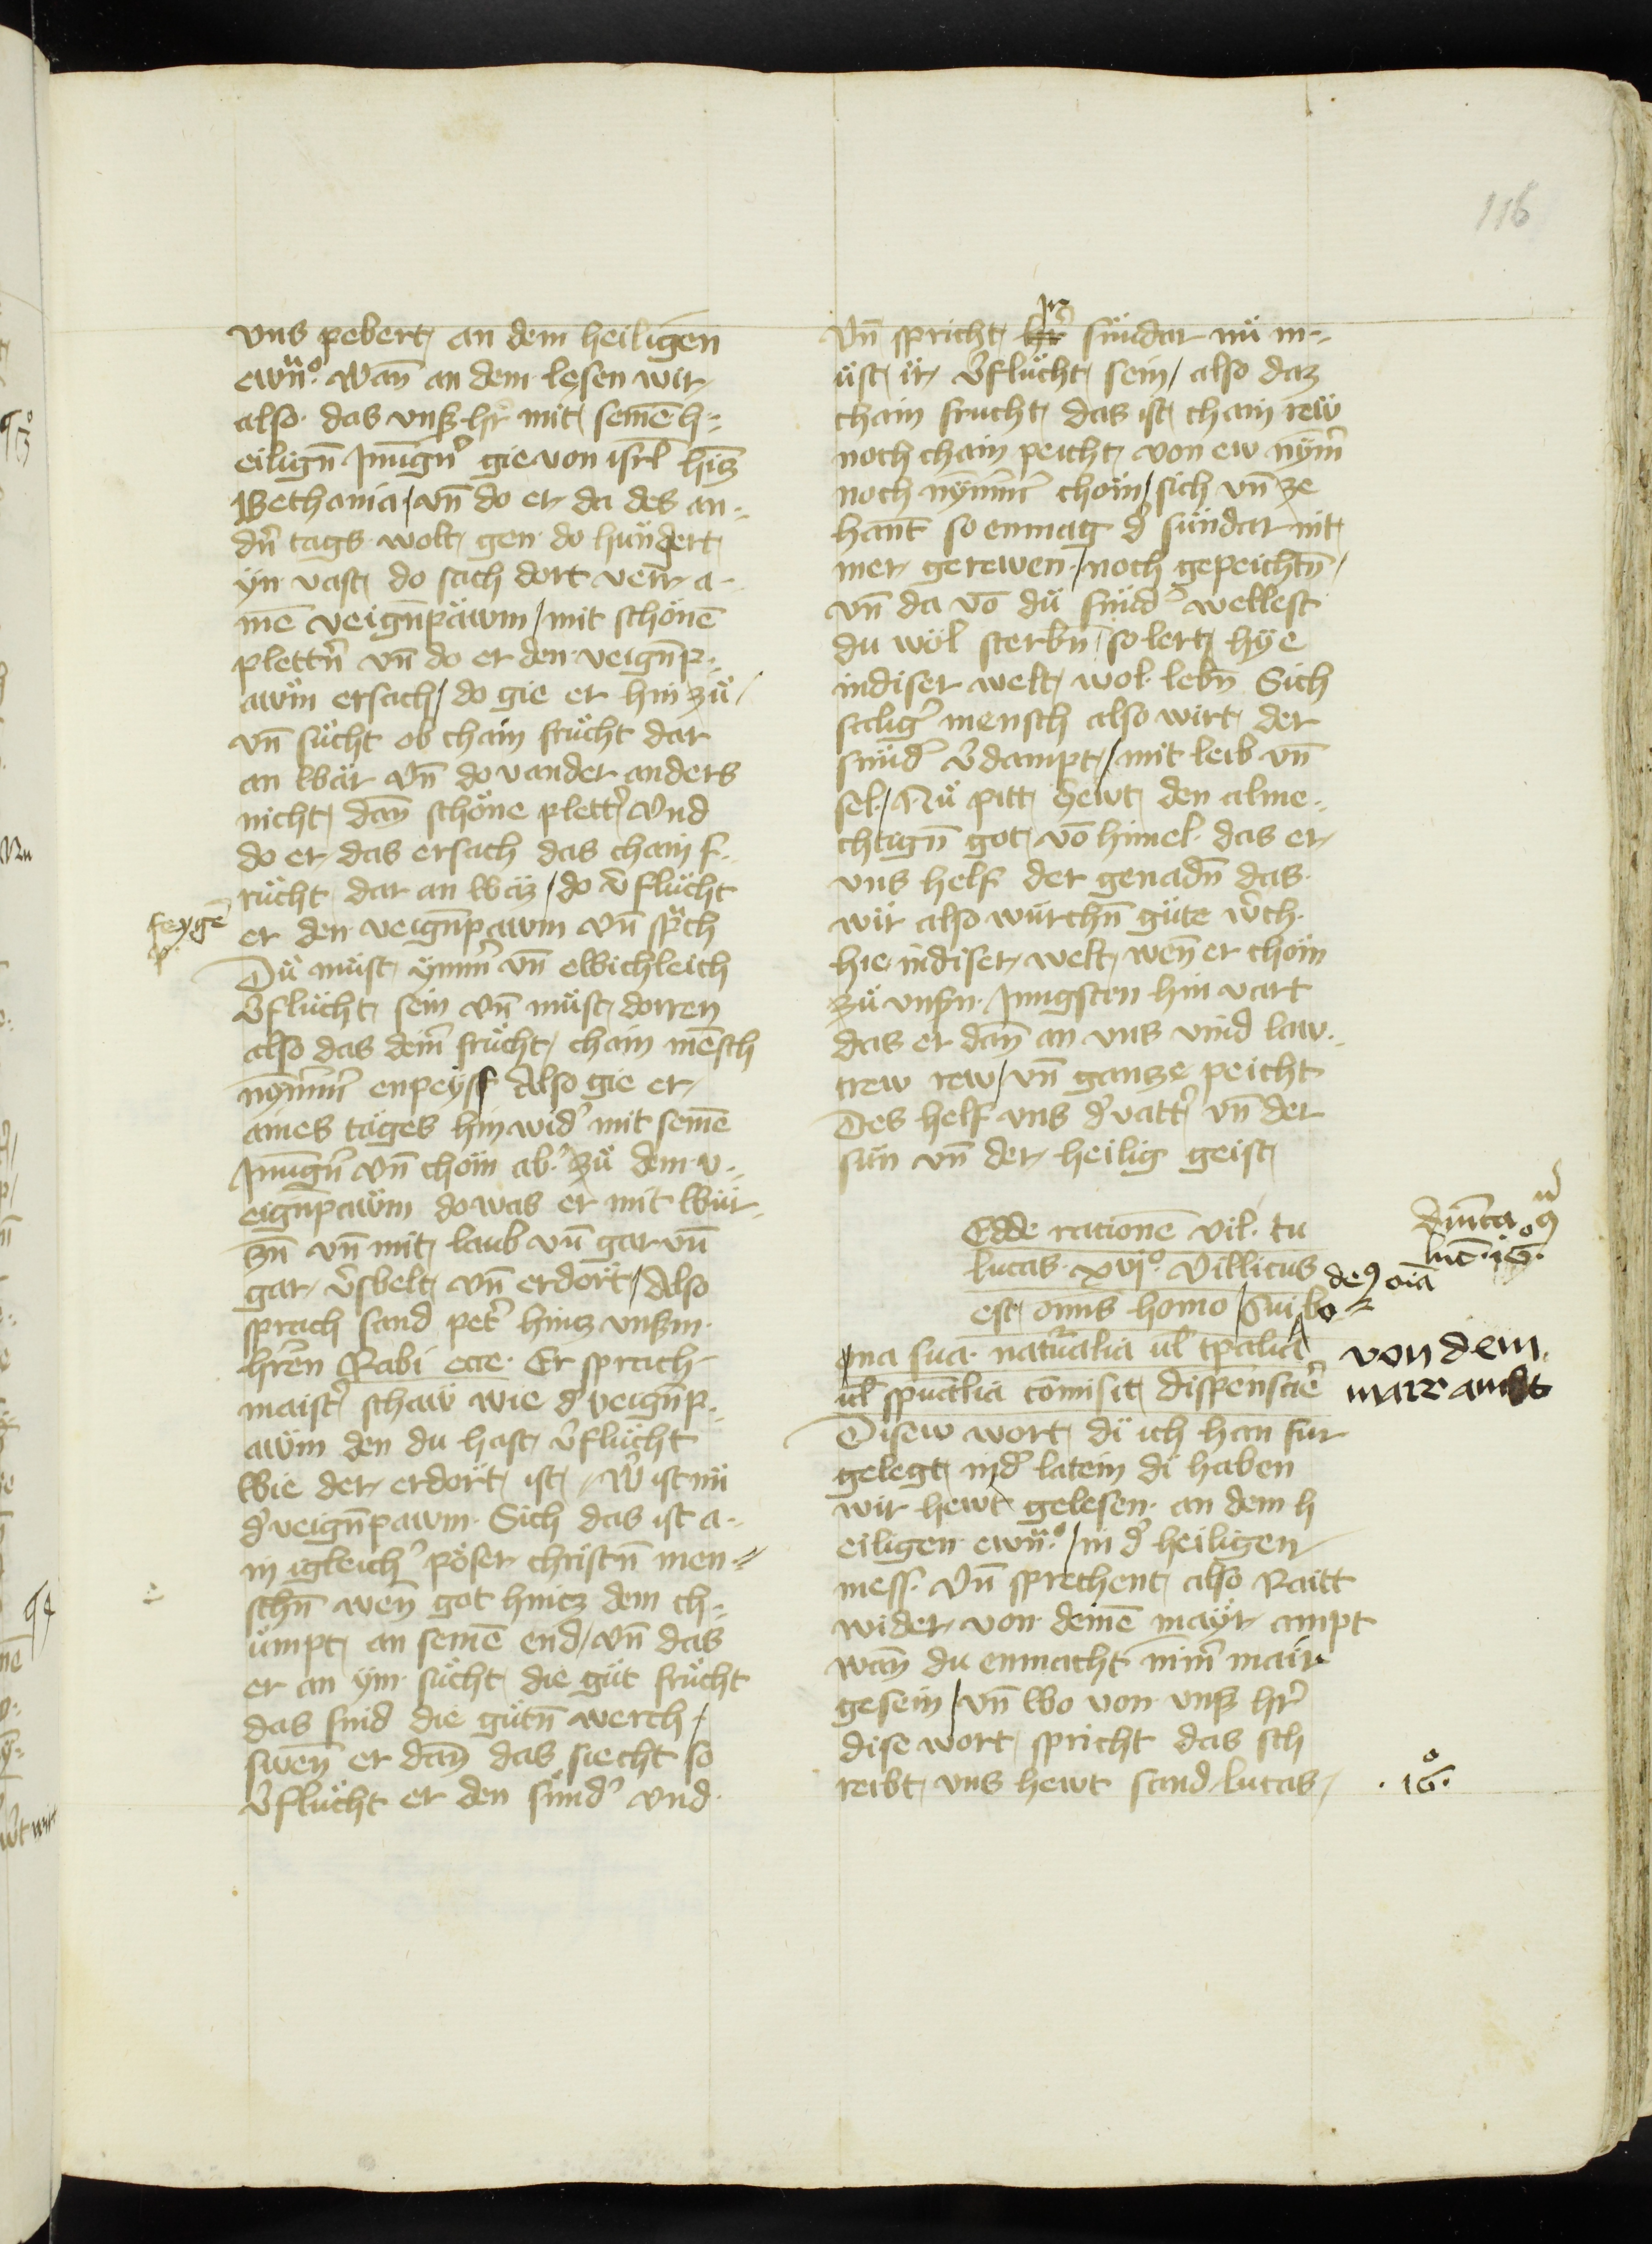 116
vns pebert an dem heiligen
ewn̄°. Wan̄ an dem lesen wir
also. das vnß hr̄ mit seinē h=
eilign̄ Jnūgn̄ gie von isrl̄ hincz
Bethania / vn̄ do er da des an=
dn̄ tags wolt gen do hündert
yn vast do sach dort verr a-
inē veign̄pawm / mit schönē
plettn̄ vn̄ do er den veign̄p=
awm ersach / do gie er hin zü
vn̄ sücht ob chain frücht dar
an wär vn̄ do vander anders
nicht dan̄ schöne plett̄ vnd
do er das ersach das chain f=
rücht dar an waz / do v̄flücht
feygē
p.
er den veign̄pawm vn̄ sprach
Dü müst ymm̄ vn̄ ewichleich
v̄flücht sein vn̄ müst dorren
also das deinr̄ frücht chain mēsch
nymm̄ enpeyss Also gie er
aines tages hin wid̄ mit seinē
Jnūgn̄ vn̄ chom ab̄ zü dem v=
eign̄pawm do was er mit wür=
czn̄ vn̄ mit laub vn̄ gar vn̄
gar v̄swelt vn̄ erdort / Also
sprach sand pet̄ hincz vnßm
hr̄en Rabi ecce. Er sprach
maist̄ schaw wie d̄ veign̄p=
awm den du hast v̄flücht
wie der erdort ist W̄ ist nü
d̄ veign̄pawm. Sich das ist a-
in igleich̄ pöser christn̄ men=
schn̄ wen̄ got hincz dem ch=
ümpt an seinē end / vn̄ das
er an ym sücht die güt frücht
das sind die gütn̄ werch /
swen̄ er dan̄ das siecht so
v̄flücht er den sünd̄ vnd
Vn̄ spricht hr̄ jr sündar nü m=
üst ir v̄flücht sein / also daz
chain frucht das ist chain rew
noch chain peicht von ew nym̄
noch nymm̄ chom / sich vn̄ ze
hant so enmag d̄ sündar nit
mer gerewen / noch gepeichtn̄ /
vn̄ da vō dü sünd̄ wellest
du wol sterbn̄ / so lert hye
in diser welt wol lebn̄ Sich
saliḡ mensch also wirt der
sünd̄ v̄dampt / mit leib vn̄
sel / Nü pitt hewt den alme=
chtign̄ got vō himel das er
vns helf der genadn̄ das
wir also würchn̄ güte w̄ch
hie in diser welt wen̄ er chom
zü vnßn Jungsten hin vart
das er dan̄ an vns vind law=
trew rew / vn̄ gancze peicht
Des helf vns d̄ vatt̄ vn̄ der
sün vn̄ der heilig geist
Edde rationē vil. tu
lucas xvj° Villicus
est omīs homo / Cui bo
na sua naturalia ul̄ tpalia
ul̄ spualia comisit dispensare
dn̄ica 9
luc̄. 16°.
de9 oīa
von dem
marr ambt
Disew wort di ich han für
gelegt in d̄ latein di haben
wir hewt gelesen an dem h
eiligen ewn̄° / in d̄ heiligen
mess. Vn̄ sprechent also Raitt
wider von deinē mayr ampt
wan̄ du enmacht nim̄ mair
gesein / vn̄ wo von vnß hr̄
dise wort spricht das sch
reibt vns hewt sand lucas
.16°.